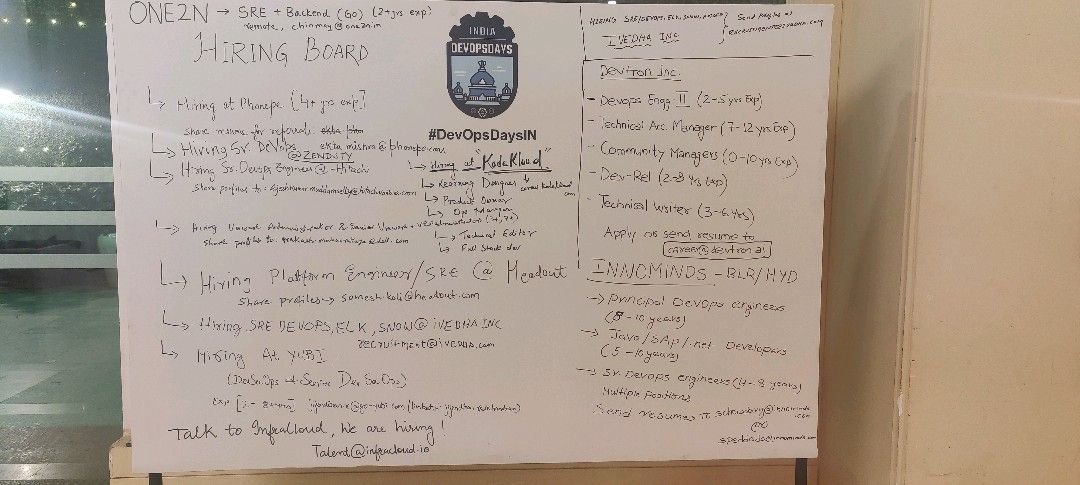 ONE2N → SRE + Backend (Go) (2+yrs exp)
remote, chinmay@one2n.in
HIRING BOARD
Hiring at Phonepe [4+ yrs exp]
share resume for referral.
ekta.mishra@phonepe.com
Hiring Sr. DevOps
@ZENDUTY
Hiring Sr. Devops Engineer @ Hitachi
share profiles to :
Hiring Unravel Administrator & Senior
share profile to:
Hiring Platform Engineer/SRE @ Headout
share profiles → somesh.koli@headout.com
Hiring SRE DEVOPS, ELK, SNOW @ iVEDHA INC
recruitment@ivedha.com
Hiring At YUBI
(DevSecOps & Senior DevSecOps)
Exp
Talk to InfraCloud, We are hiring!
Talent@infracloud.io
INDIA
DEVOPSDAYS
#DevOpsDaysIN
Hiring at "KodeKloud"
Learning Designer
Product Owner
Ops Manager
Technical Editor
Full Stack dev
HIRING SRE/DEVOPS, ELK, SNOW,
IVEDHA INC
Send profiles at
recruitment@ivedha.com
Devtron inc.
- Devops Engg. II (2-5 yrs Exp)
- Technical Acc. Manager (7-12 yrs Exp)
- Community Managers (0-10 yrs Exp)
- Dev-Rel (2-8 yrs Exp)
- Technical Writer (3-6 yrs)
Apply or send resume to
career@devtron.ai
INNOMINDS - BLR/HYD
→ Principal DevOps engineers
(8-10 years)
→ Java/SAP/.net Developers
(5-10 years)
→ Sr. Devops engineers (4-8 years)
Multiple Positions
Send resumes To
(or)